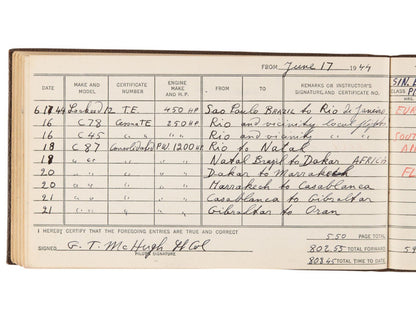 FROM June 17 1944
DATE MAKE AND MODEL CERTIFICATE NUMBER ENGINE MAKE AND H.P. FROM TO REMARKS OR INSTRUCTOR'S SIGNATURE, AND CERTIFICATE NO. CLASS
6.17.44 Lockheed 12 T.E. 450 HP Sao Paulo BRAZIL to Rio de Janeiro
16 C 78 Cessna T.E. 250 HP. Rio and vicinity local flight
16 C 45 " " " Rio and vicinity "
18 C 87 Consolidated P.W. 1200 HP. Rio to Natal
19 " " " " Natal Brazil to Dakar AFRICA
20 " " " " Dakar to Marrakech
20 " " " " Marrakech to Casablanca
21 " " " " Casablanca to Gibraltar
21 " " " " Gibraltar to Oran
I HEREBY CERTIFY THAT THE FOREGOING ENTRIES ARE TRUE AND CORRECT
5 50 PAGE TOTAL
SIGNED G. T. McHugh Lt Col
PILOT'S SIGNATURE
802.55 TOTAL FORWARD
808.45 TOTAL TIME TO DATE